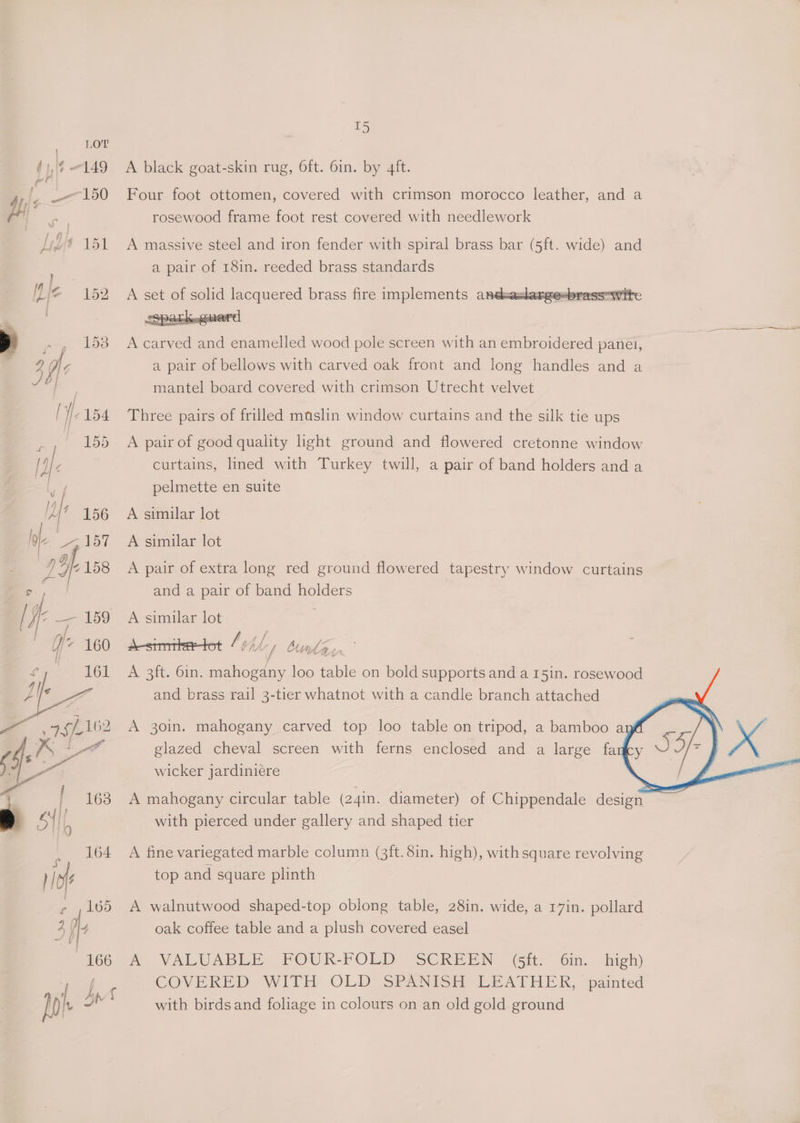 15
LOT
149 A black goat-skin rug, 6ft. 6in. by 4ft.
150 Four foot ottomen, covered with crimson morocco leather, and a
rosewood frame foot rest covered with needlework
151 A massive steel and iron fender with spiral brass bar (5ft. wide) and
a pair of 18in. reeded brass standards
152 A set of solid lacquered brass fire implements and a large brass wire
spark guard
153 A carved and enamelled wood pole screen with an embroidered panel,
a pair of bellows with carved oak front and long handles and a
mantel board covered with crimson Utrecht velvet
154 Three pairs of frilled muslin window curtains and the silk tie ups
155 A pair of good quality light ground and flowered cretonne window
curtains, lined with Turkey twill, a pair of band holders and a
pelmette en suite
156 A similar lot
157 A similar lot
158 A pair of extra long red ground flowered tapestry window curtains
and a pair of band holders
159 A similar lot
160 A similar lot
161 A 3ft. 6in. mahogany loo table on bold supports and a 15in. rosewood
and brass rail 3-tier whatnot with a candle branch attached
162 A 30in. mahogany carved top loo table on tripod, a bamboo and
glazed cheval screen with ferns enclosed and a large fancy 35/- X
wicker jardinière
163 A mahogany circular table (24in. diameter) of Chippendale design
with pierced under gallery and shaped tier
164 A fine variegated marble column (3ft. 8in. high), with square revolving
top and square plinth
165 A walnutwood shaped-top oblong table, 28in. wide, a 17in. pollard
oak coffee table and a plush covered easel
166 A VALUABLE FOUR-FOLD SCREEN (5ft. 6in. high)
COVERED WITH OLD SPANISH LEATHER, painted
with birds and foliage in colours on an old gold ground